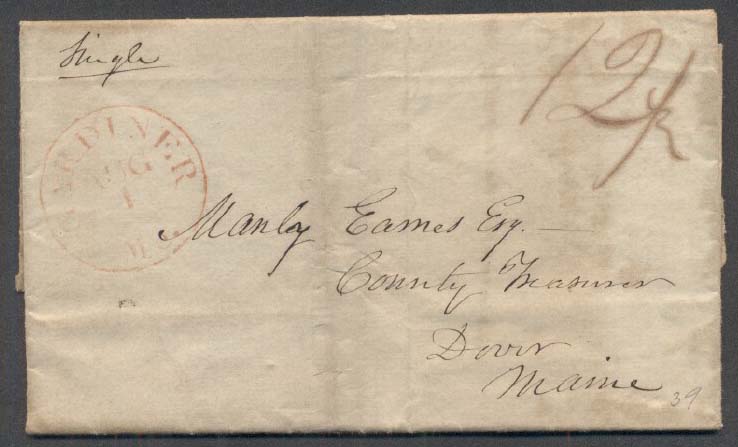 Single
12½
GARDINER
AUG
1
ME.
Manly Eames Esq.
County Treasurer
Dover
Maine
39